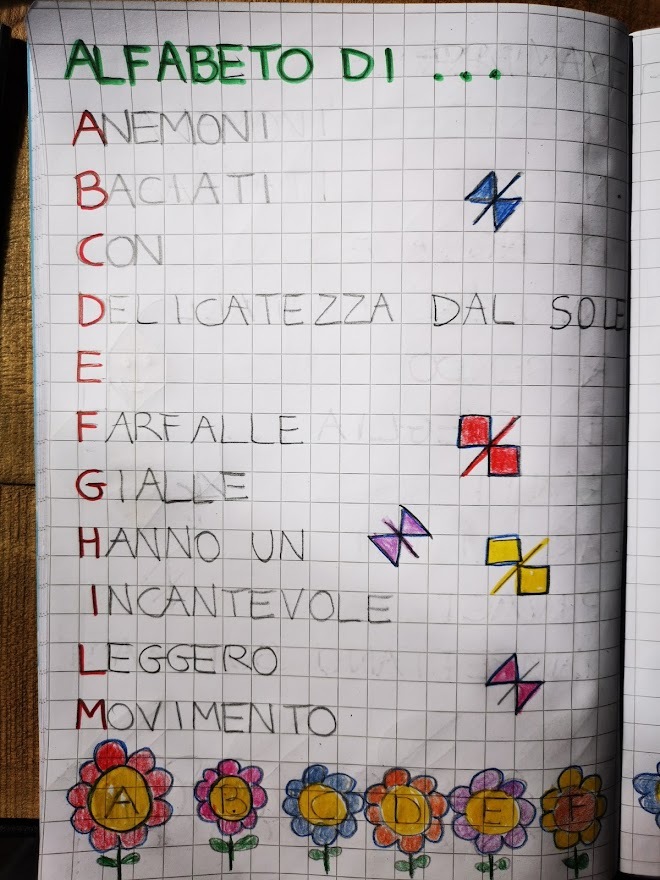 ALFABETO DI ...
ANEMONI
BACIATI
CON
DELICATEZZA DAL SOLE
E
FARFALLE
GIALLE
HANNO UN
INCANTEVOLE
LEGGERO
MOVIMENTO
A B C D E F